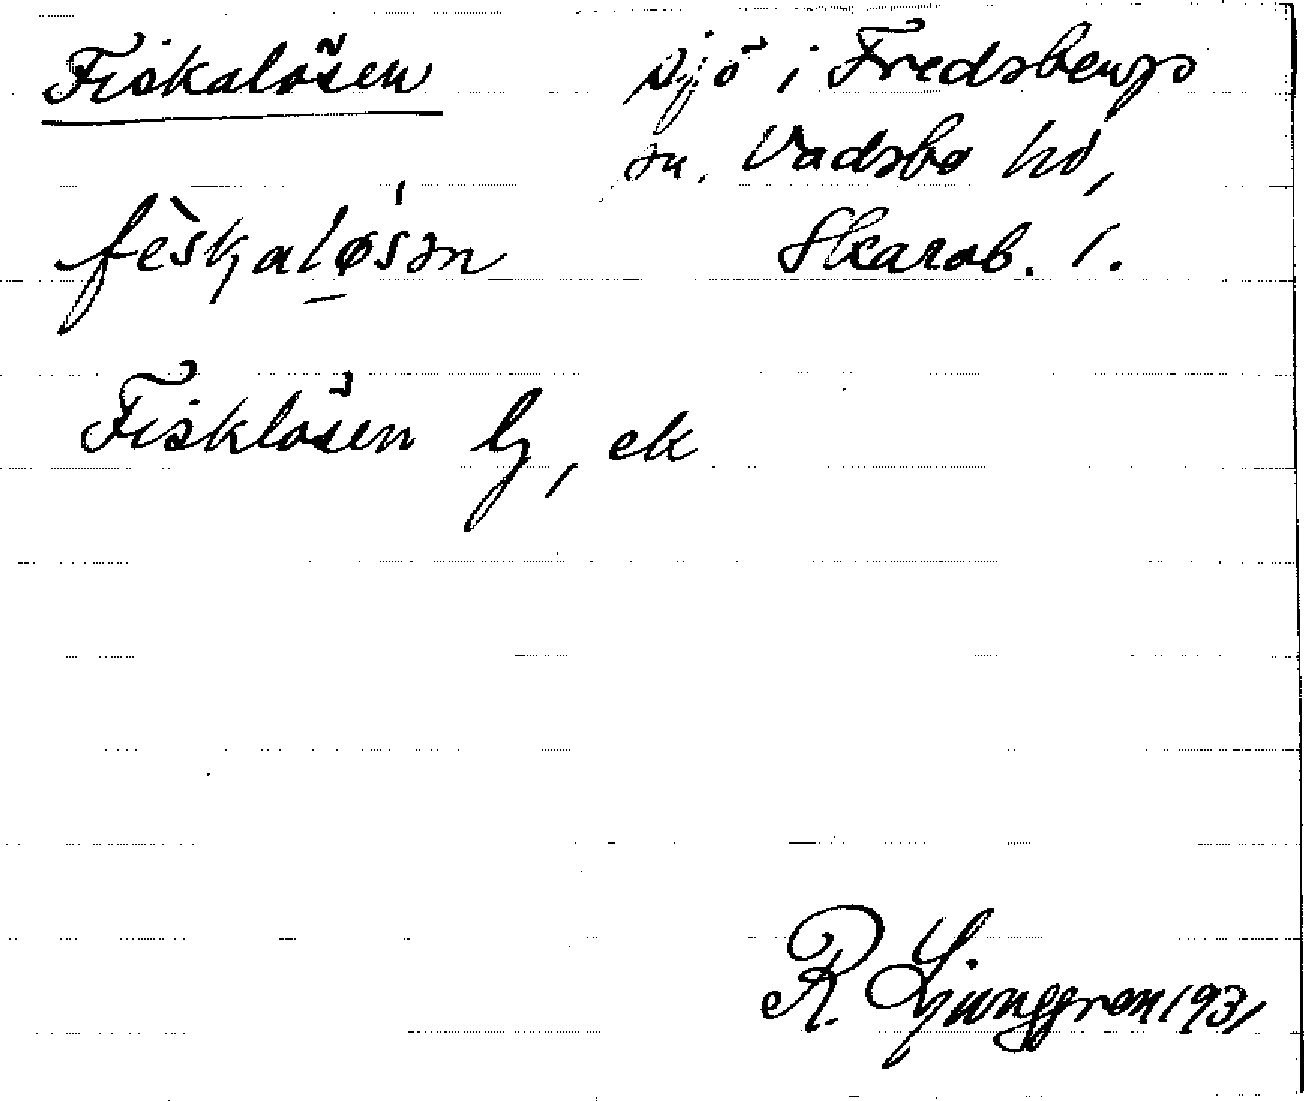 Fiskalösen sjö i Fredsbergs
sn. Vadsbo hd,
fèskaløsən Skarab. l.
Fisklösen G, ek
R Ljunggren 1931